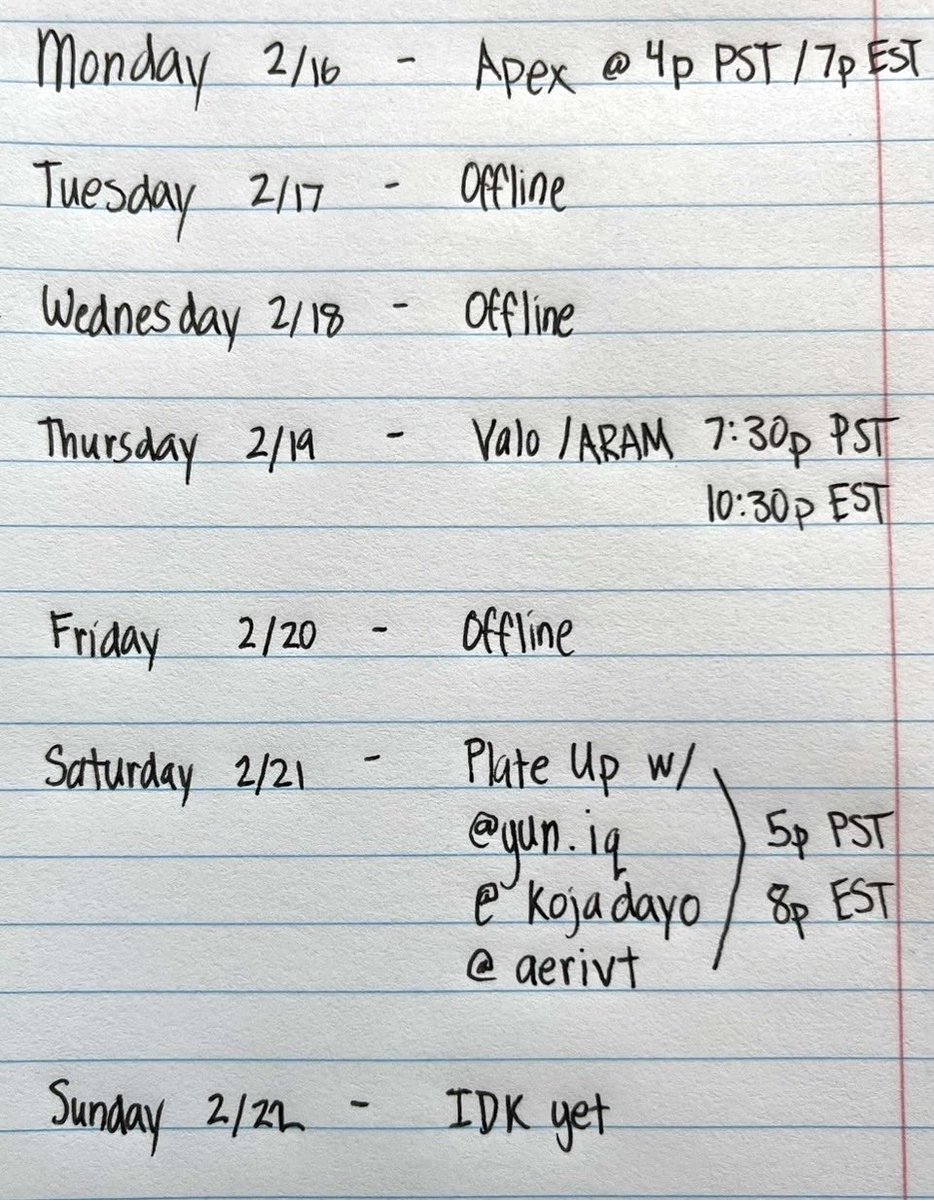 Monday 2/16 - Apex @ 4p PST / 7p EST
Tuesday 2/17 - Offline
Wednesday 2/18 - Offline
Thursday 2/19 - Valo / ARAM 7:30p PST
10:30p EST
Friday 2/20 - Offline
Saturday 2/21 - Plate Up w/
@yun.iq 5p PST
@kojadayo 8p EST
@aerivt
Sunday 2/22 - IDK yet